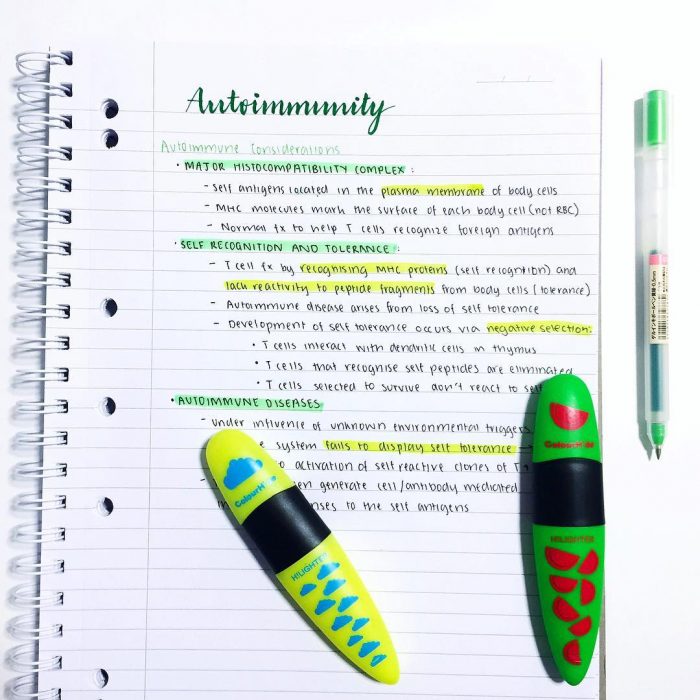 Autoimmunity
Autoimmune Considerations
· MAJOR HISTOCOMPATIBILITY COMPLEX :
- Self antigens located in the plasma membrane of body cells
- MHC molecules mark the surface of each body cell (not RBC)
- Normal fx to help T cells recognize foreign antigens
· SELF RECOGNITION AND TOLERANCE :
- T cell fx by recognising MHC proteins (self recognition) and
lack reactivity to peptide fragments from body cells (tolerance)
- Autoimmune disease arises from loss of self tolerance
- Development of self tolerance occurs via negative selection:
· T cells interact with dendritic cells in thymus
· T cells that recognise self peptides are eliminated
· T cells selected to survive don't react to self
· AUTOIMMUNE DISEASES
- under influence of unknown environmental triggers,
system fails to display self tolerance
to activation of self reactive clones of T
generate cell/antibody mediated
to the self antigens
ColourHide
HILIGHTER
ColourHide
HILIGHTER
0.5mm